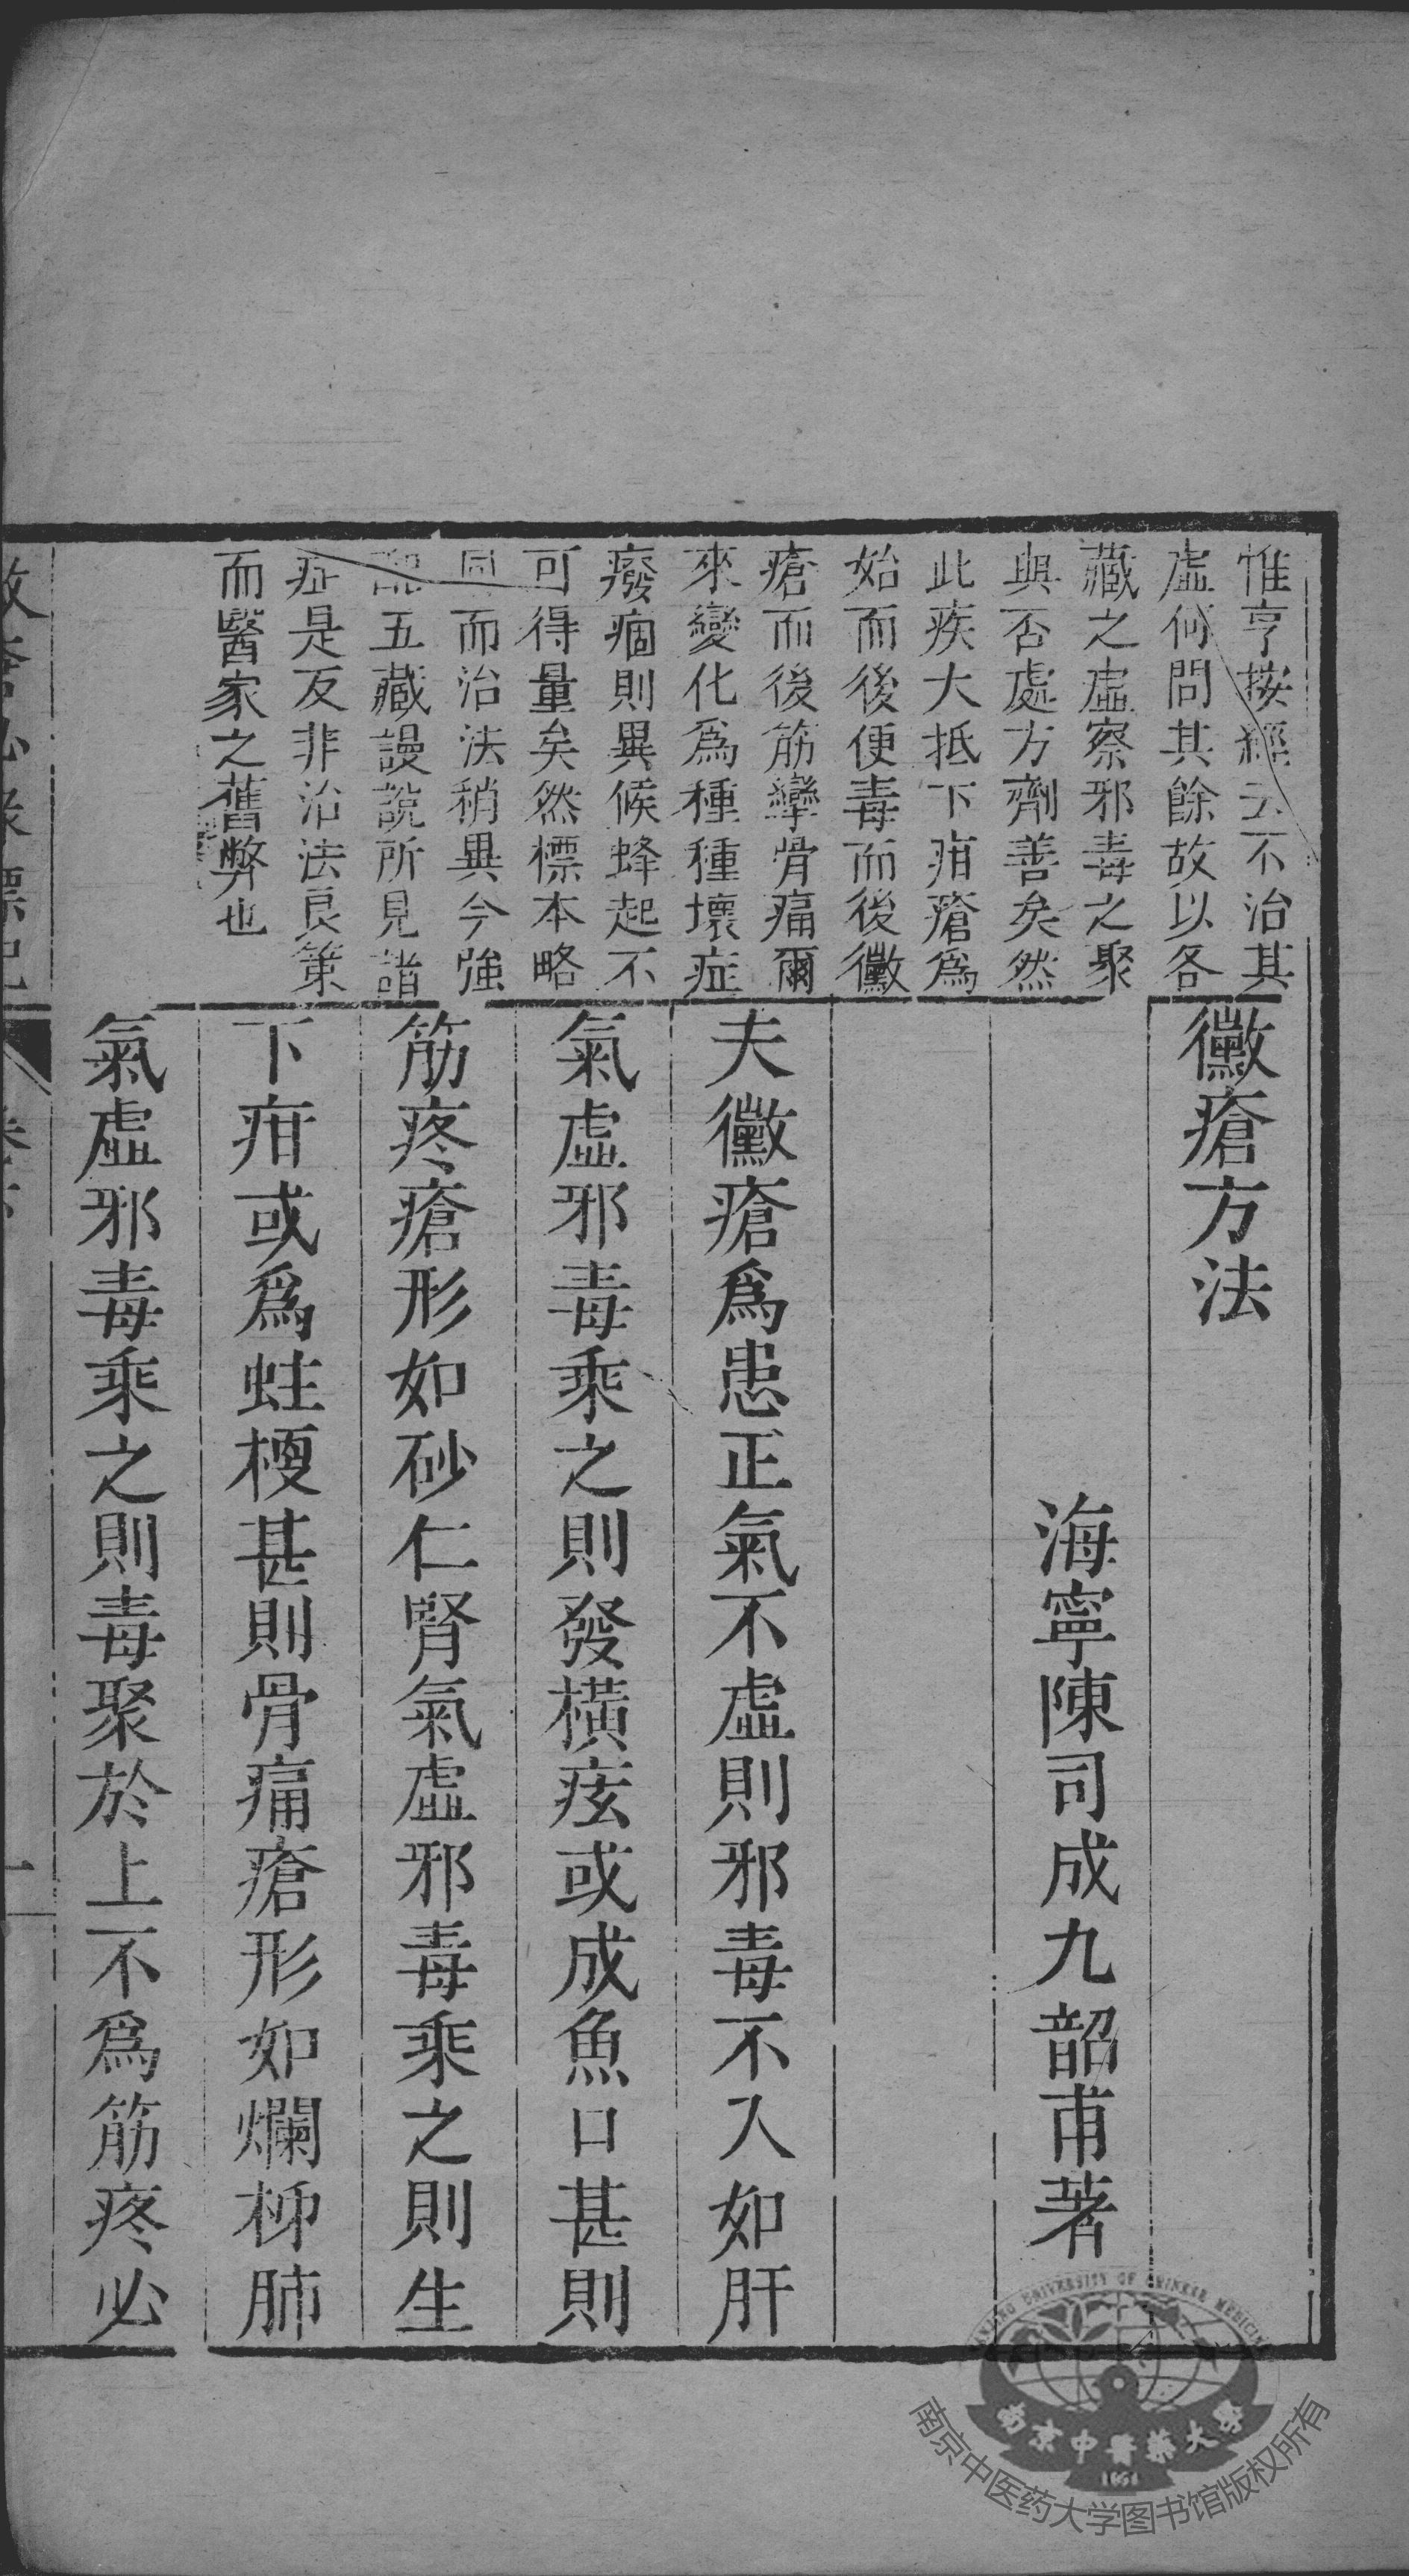 惟亨按經云不治其
虛何問其餘故以各
藏之虛察邪毒之聚
與否處方劑善矣然
此疾大抵下疳瘡爲
始而後便毒而後黴
瘡而後筋攣骨痛爾
來變化爲種種壞症
癈痼則異候蜂起不
可得量矣然標本略
同而治法稍異今強
配五藏謾說所見諸
症是反非治法良策
而醫家之舊弊也
黴瘡方法
海寧陳司成九韶甫著
夫黴瘡爲患正氣不虛則邪毒不入如肝
氣虛邪毒乘之則發橫痃或成魚口甚則
筋疼瘡形如砂仁腎氣虛邪毒乘之則生
下疳或爲蛀梗甚則骨痛瘡形如爛柳肺
氣虛邪毒乘之則毒聚於上不爲筋疼必
NANJING UNIVERSITY OF CHINESE MEDICINE
南京中醫藥大學
1954
南京中医药大学图书馆版权所有